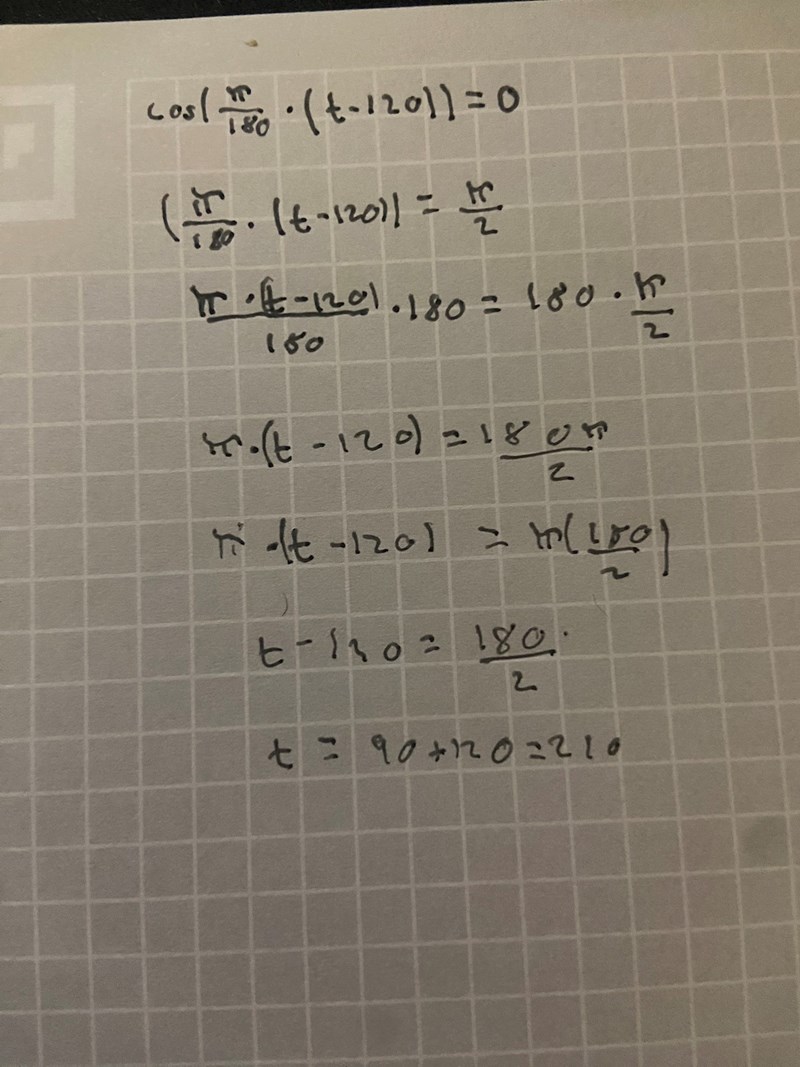 cos(π/180 · (t-120)) = 0
(π/180 · (t-120)) = π/2
π · (t-120)/180 · 180 = 180 · π/2
π · (t - 120) = 180π/2
π · (t - 120) = π(180/2)
t - 120 = 180/2
t = 90 + 120 = 210